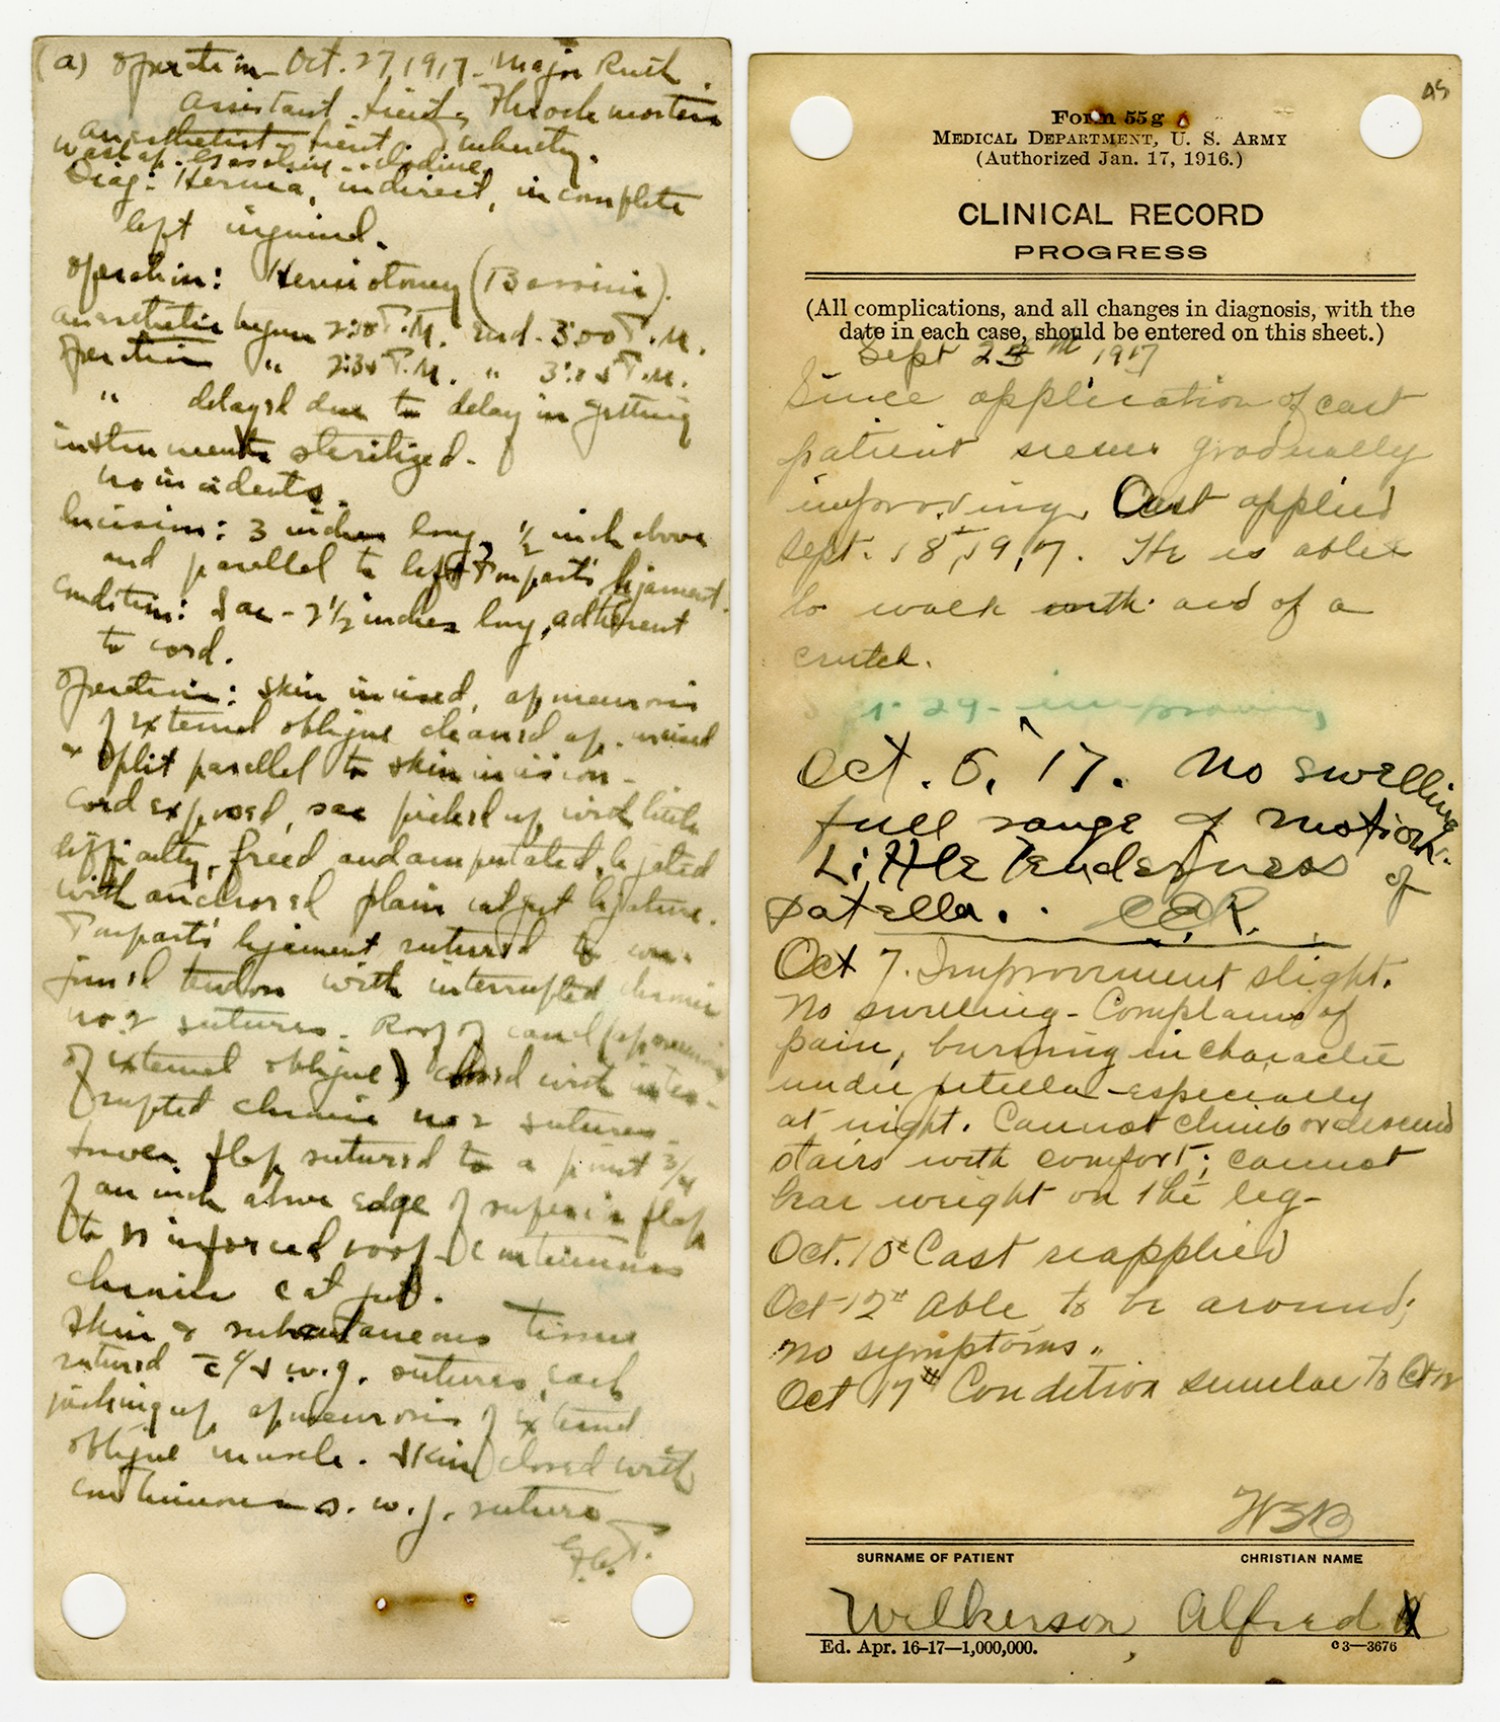 (a) Operation Oct. 27, 1917 - Major Rush.
Assistant Lieut. Throckmorton
anaesthetist Lieut.
Wash up - Gasoline - Iodine.
Diag: Hernia, indirect, incomplete
left inguinal.
Operation: Herniotomy (Bassini).
anaesthetic began 2:10 P.M. end - 3:00 P.M.
Operation " 2:30 P.M. " P.M.
" delayed due to delay in getting
instruments sterilized.
no incidents.
Incision: 3 inches long, 1/2 inch above
and parallel to left Poupart's ligament.
Condition: Sac - 2 1/2 inches long, adherent
to cord.
Operation: Skin incised, aponeurosis
of external oblique cleaned up - incised
& split parallel to skin incision -
Cord exposed, sac picked up with little
difficulty, freed and amputated, ligated
with anchored plain catgut ligature.
Poupart's ligament sutured to con-
joined tendon with interrupted chromic
no 2 sutures. Roof of canal (aponeurosis
of external oblique) closed with inter-
rupted chromic no 2 sutures -
Lower flap sutured to a point 3/4
of an inch above edge of superior flap
to reinforced roof - Continuous
chromic cat gut.
Skin & subcutaneous tissue
sutured c̄ s.w.g. sutures, each
picking up aponeurosis of external
oblique muscle. Skin closed with
continuous s.w.g. suture
F.C.T.
AS
Form 55g
MEDICAL DEPARTMENT, U. S. ARMY
(Authorized Jan. 17, 1916.)
CLINICAL RECORD
PROGRESS
(All complications, and all changes in diagnosis, with the
date in each case, should be entered on this sheet.)
Sept 1917
Since application of cast
patient seems gradually
improving. Cast applied
Sept. 18, 1917. He is able
to walk with aid of a
crutch.
29 - improving
Oct. 6, '17. No swelling
full range of motion.
Little Tenderness of
patella. C.A.R.
Oct 7. Improvement slight.
No swelling - Complains of
pain, burning in character
under patella - especially
at night. Cannot climb or descend
stairs with comfort; cannot
bear weight on the leg -
Oct. 10 Cast reapplied
Oct 12" Able to be around;
no symptoms.
Oct 17" Condition similar to Oct 12
WBB
SURNAME OF PATIENT CHRISTIAN NAME
Wilkerson, Alfred
Ed. Apr. 16-17—1,000,000. c3—3676